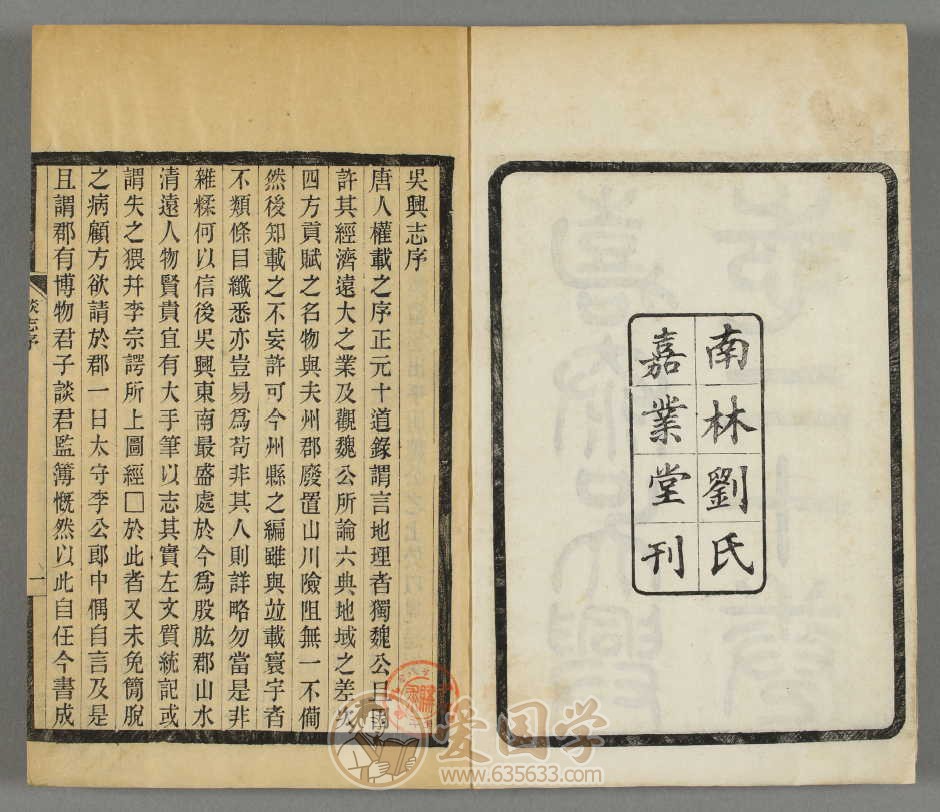 南林劉氏
嘉業堂刊
吳興志序
唐人權載之序正元十道錄謂言地理者獨魏公且
許其經濟遠大之業及觀魏公所論六典地域之差次
四方貢賦之名物與夫州郡廢置山川險阻無一不備
然後知載之不妄許可今州縣之編雖與竝載寰宇者
不類條目纖悉亦豈易爲苟非其人則詳略勿當是非
雜糅何以信後吳興東南最盛處於今爲股肱郡山水
清遠人物賢貴宜有大手筆以志其實左文質統記或
謂失之猥幷李宗諤所上圖經□於此者又未免簡脫
之病顧方欲請於郡一日太守李公郎中偶自言及是
且謂郡有博物君子談君監簿慨然以此自任今書成
談志序
一
爱国学
www.635633.com